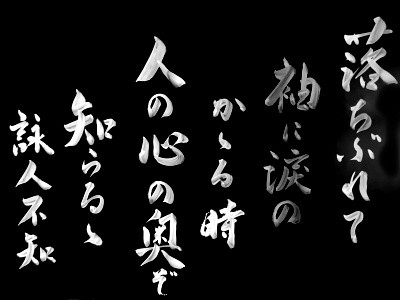 落ちぶれて
袖に涙の
かゝる時
人の心の奥ぞ
知らるゝ
詠人不知